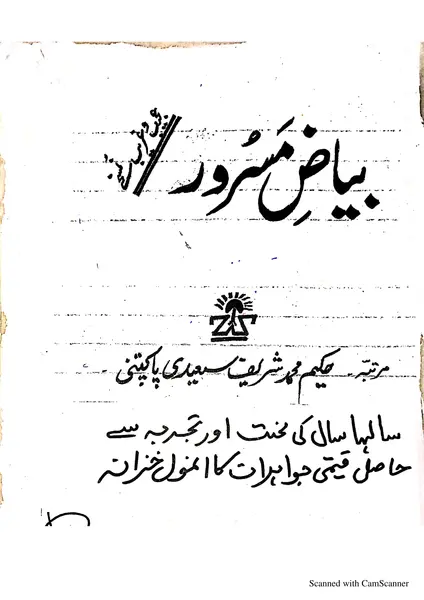 بیاضِ مَسرُور
عجیب و غریب نسخے
مرتبہ۔ حکیم محمد شریف سعیدی پاکپتنی
سالہا سال کی محنت اور تجربہ سے
حاصل قیمتی جواہرات کا انمول خزانہ
Scanned with CamScanner